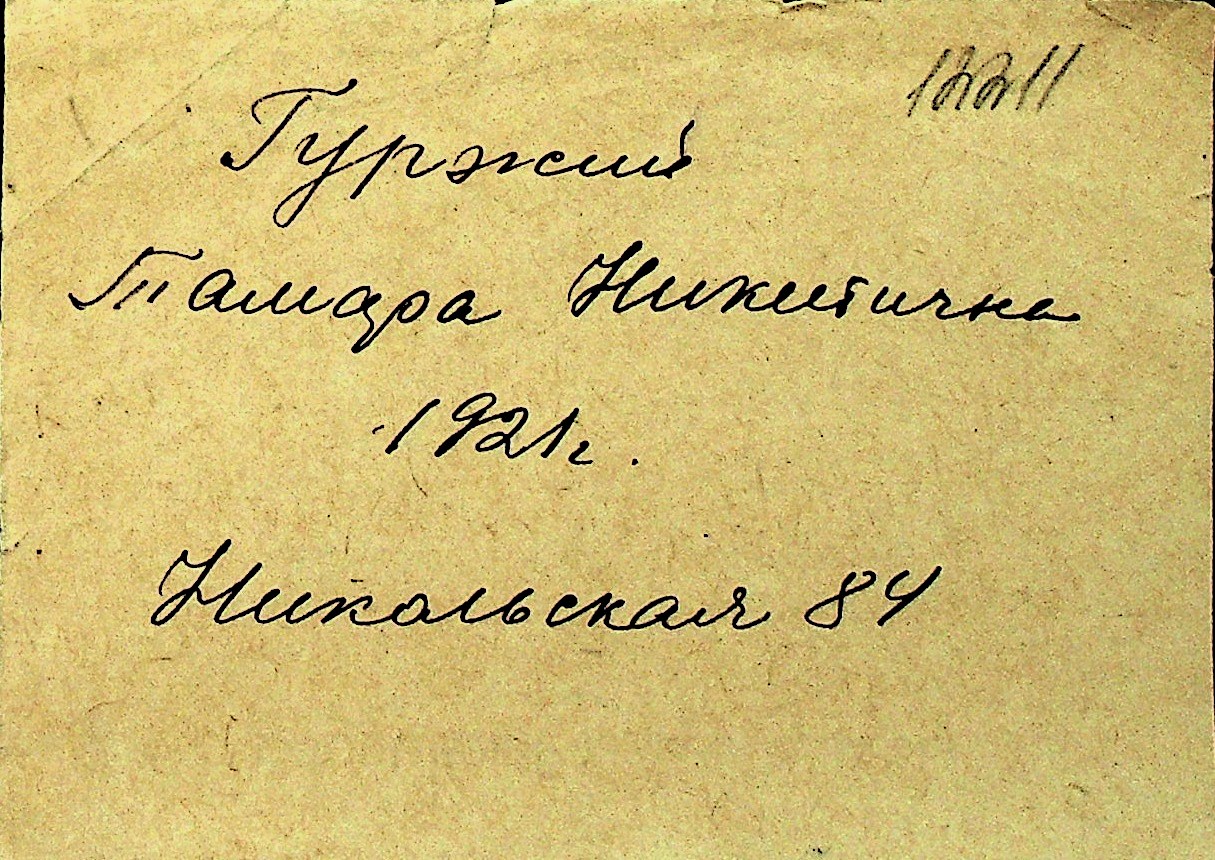 12211
Гуржий
Тамара Никитична
1921г.
Никольская 84